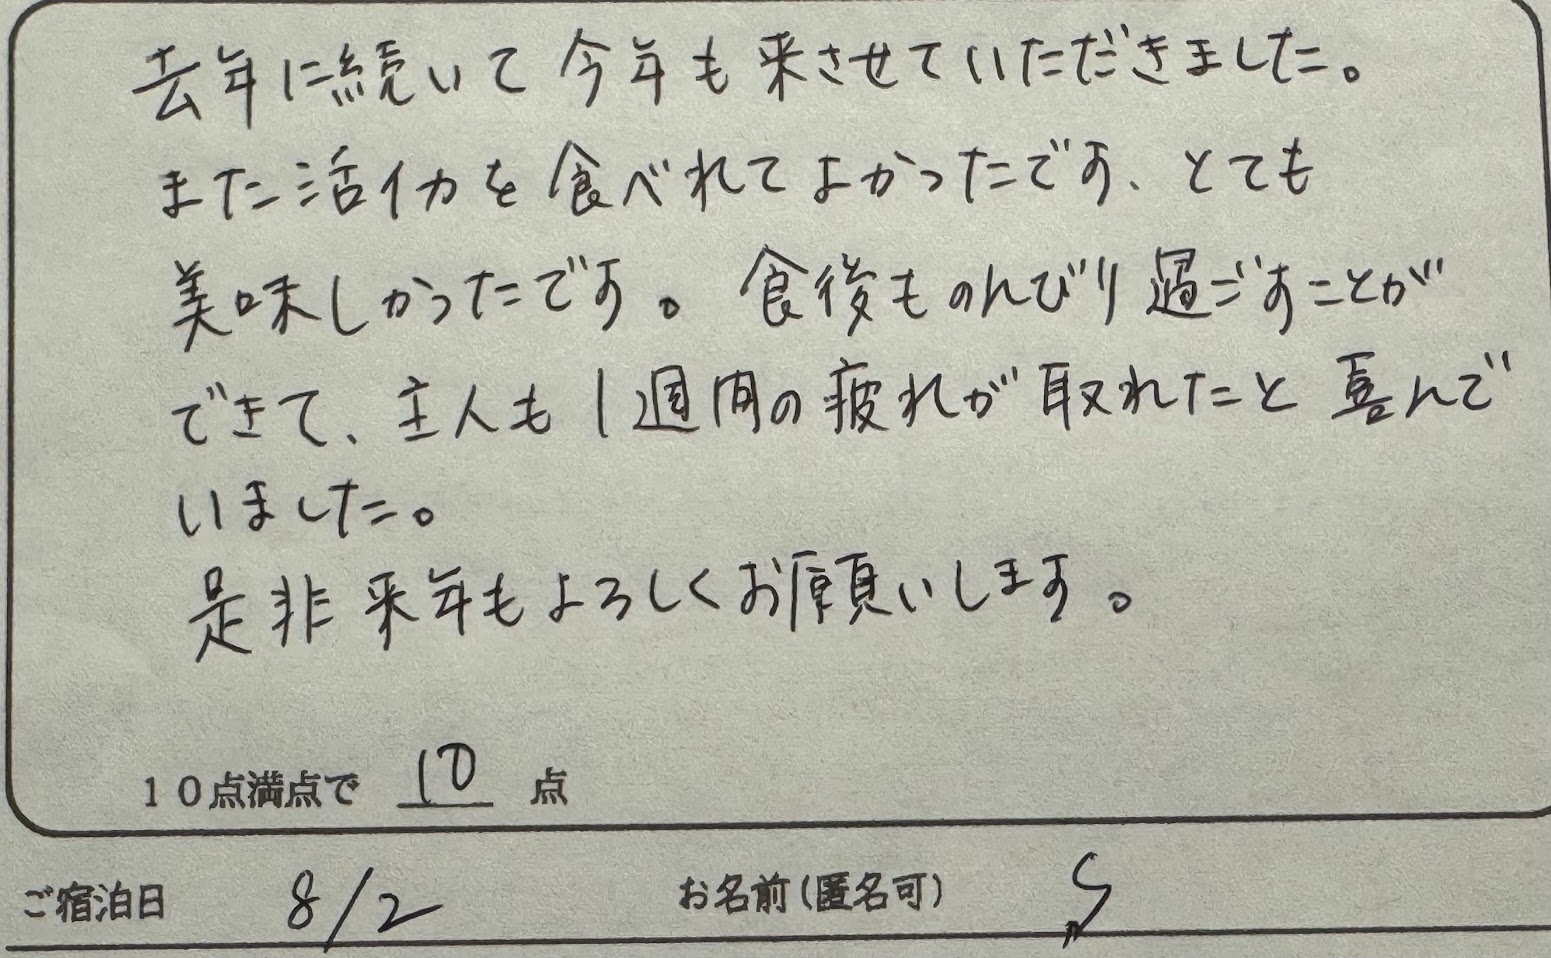 去年に続いて今年も来させていただきました。
また活イカを食べれてよかったです、とても
美味しかったです。食後ものんびり過ごすことが
できて、主人も1週間の疲れが取れたと喜んで
いました。
是非来年もよろしくお願いします。
10点満点で 10 点
ご宿泊日 8/2 お名前(匿名可) S